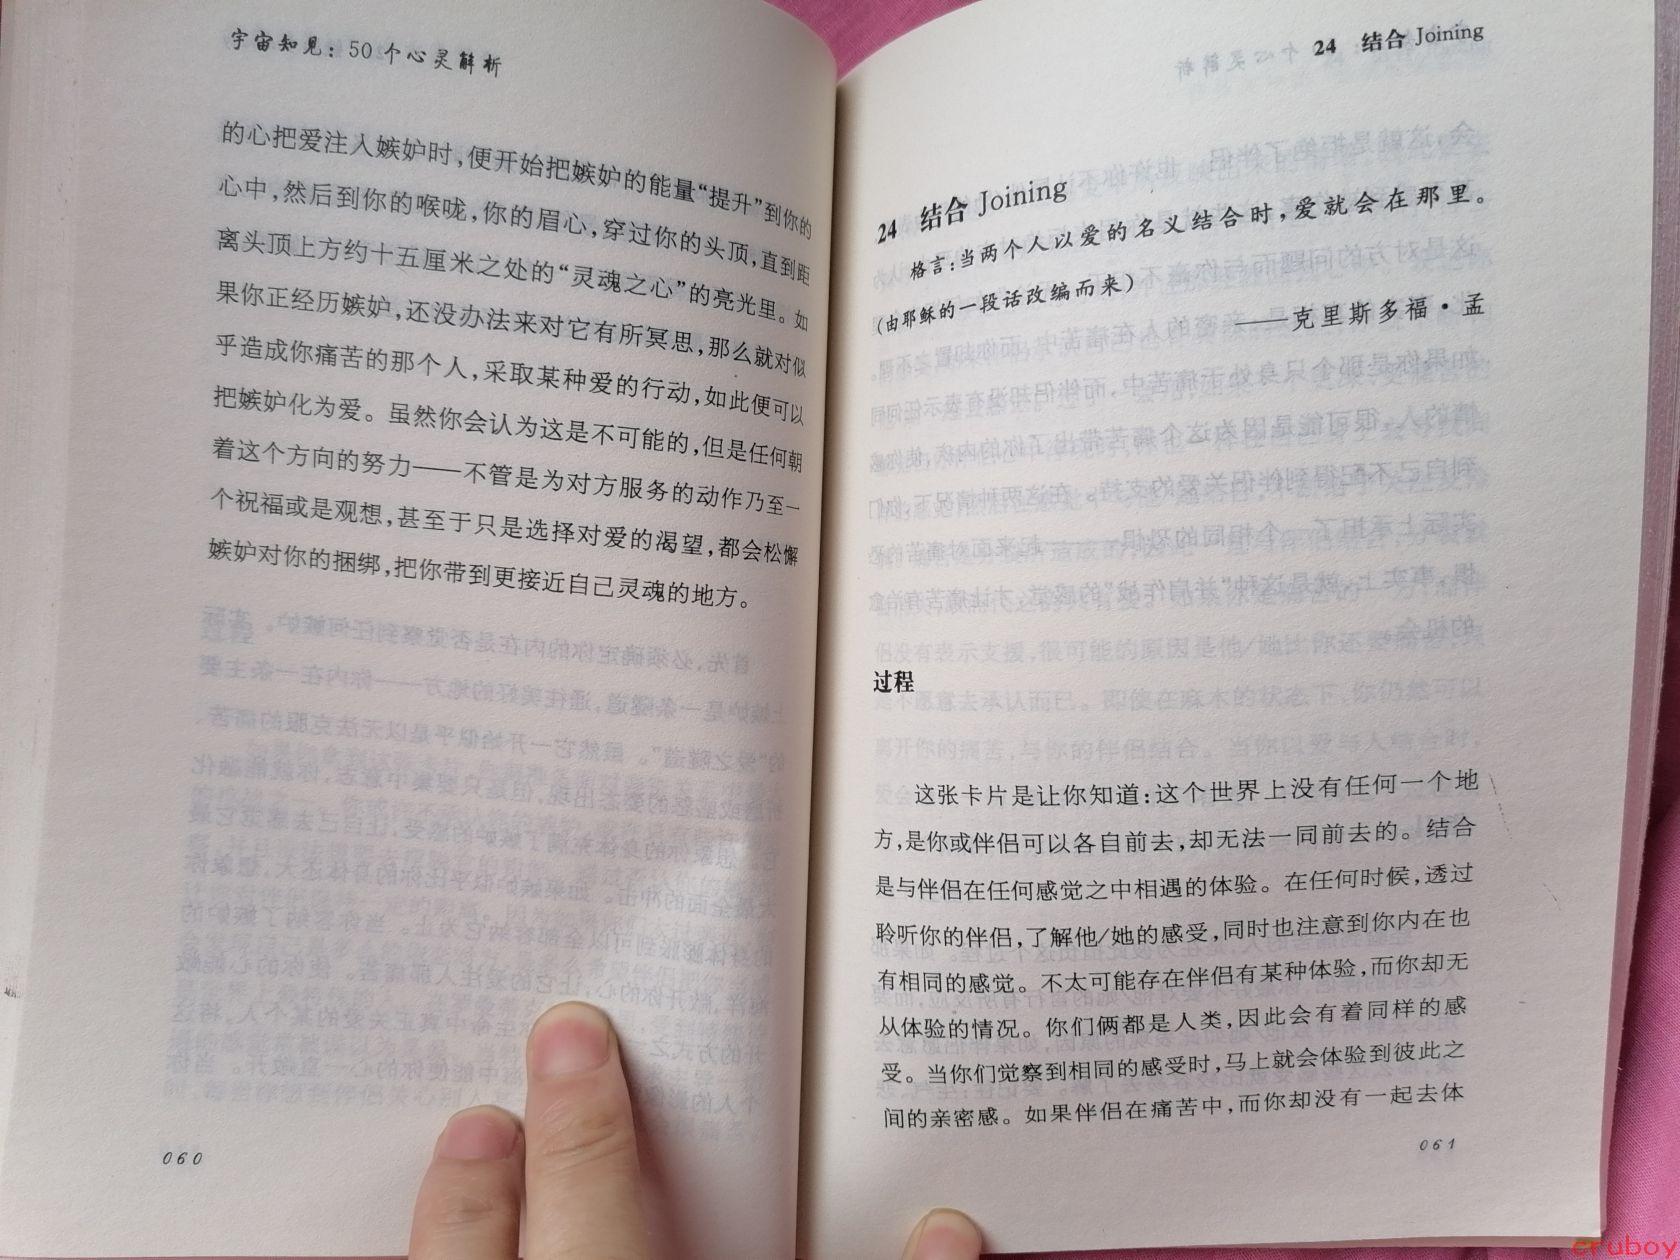 宇宙知见：50个心灵解析
的心把爱注入嫉妒时，便开始把嫉妒的能量“提升”到你的
心中，然后到你的喉咙，你的眉心，穿过你的头顶，直到距
离头顶上方约十五厘米之处的“灵魂之心”的亮光里。如
果你正经历嫉妒，还没办法来对它有所冥思，那么就对似
乎造成你痛苦的那个人，采取某种爱的行动，如此便可以
把嫉妒化为爱。虽然你会认为这是不可能的，但是任何朝
着这个方向的努力——不管是为对方服务的动作乃至一
个祝福或是观想，甚至于只是选择对爱的渴望，都会松懈
嫉妒对你的捆绑，把你带到更接近自己灵魂的地方。
060
24 结合 Joining
24 结合 Joining
格言：当两个人以爱的名义结合时，爱就会在那里。
（由耶稣的一段话改编而来）
——克里斯多福·孟
过程
这张卡片是让你知道：这个世界上没有任何一个地
方，是你或伴侣可以各自前去，却无法一同前去的。结合
是与伴侣在任何感觉之中相遇的体验。在任何时候，透过
聆听你的伴侣，了解他/她的感受，同时也注意到你内在也
有相同的感觉。不太可能存在伴侣有某种体验，而你却无
从体验的情况。你们俩都是人类，因此会有着同样的感
受。当你们觉察到相同的感受时，马上就会体验到彼此之
间的亲密感。如果伴侣在痛苦中，而你却没有一起去体
061
cruboy